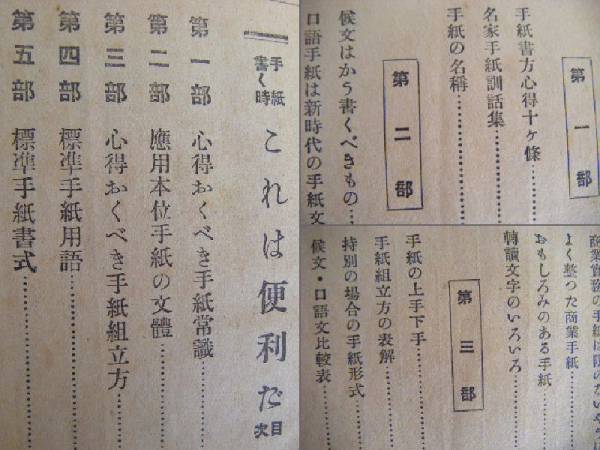 手紙書く時 これは便利だ 目次
第一部 心得おくべき手紙常識
第二部 應用本位手紙の文體
第三部 心得おくべき手紙組立方
第四部 標準手紙用語
第五部 標準手紙書式
第一部
手紙書方心得十ヶ條
名家手紙訓話集
手紙の名稱
第二部
候文はかう書くべきもの
口語手紙は新時代の手紙文
商業實務の手紙は
よく整つた商業手紙
おもしろみのある手紙
轉讀文字のいろいろ
第三部
手紙の上手下手
手紙組立方の表解
特別の場合の手紙形式
候文・口語文比較表